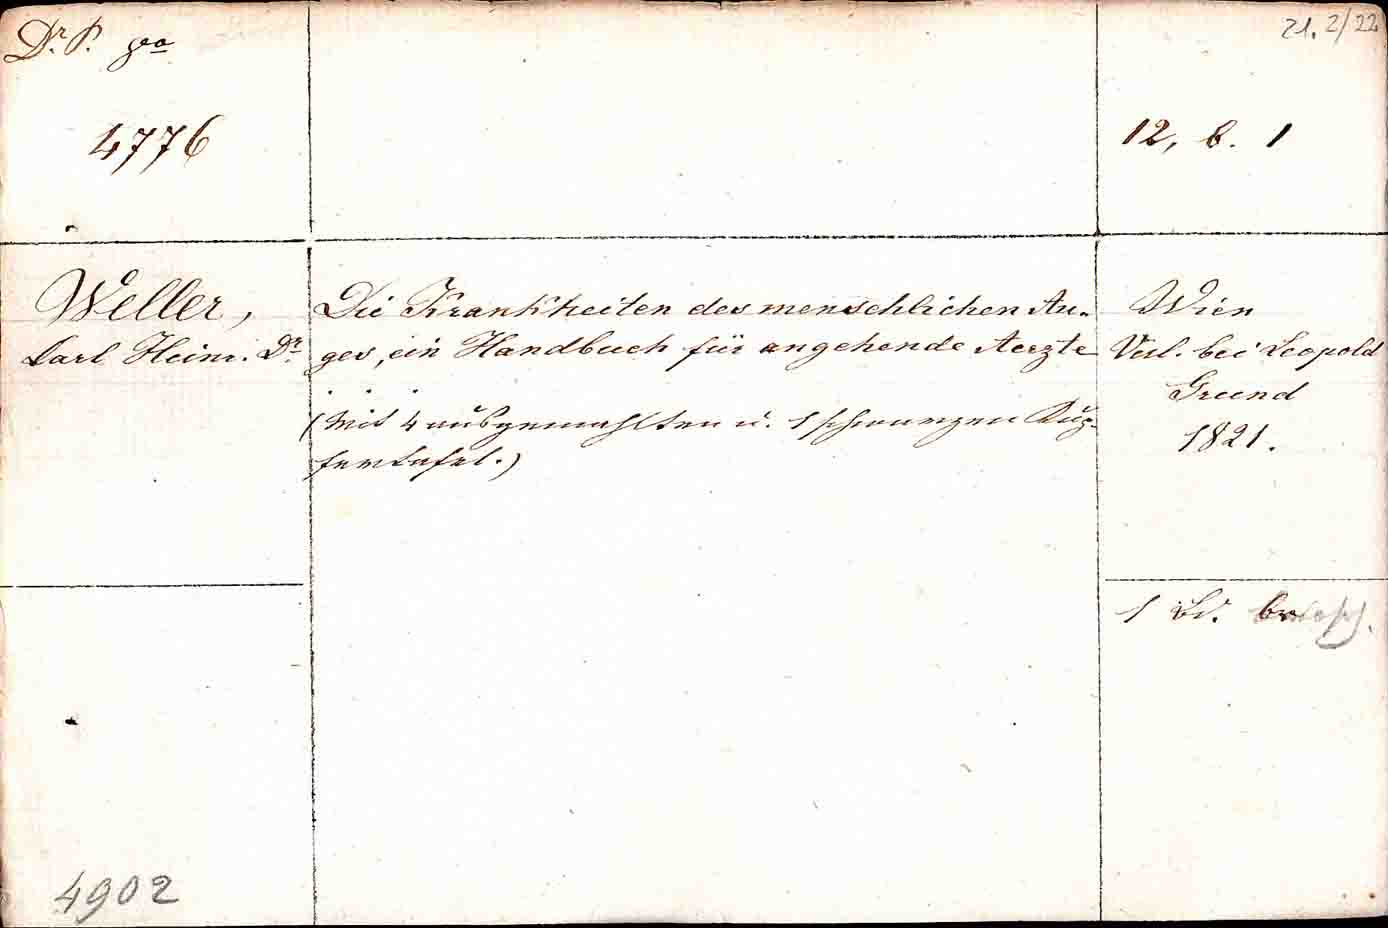 Dr. P.
21. 2/22
4776
12, b. 1
Weller,
Carl Heinr. Dr.
Die Krankheiten des menschlichen Au-
ges, ein Handbuch für angehende Aerzte
. . .
(Mit 4 ausgemahlten u. 1 schwarzen Kup-
fertafel.)
Wien
Verl. bei Leopold
Grund
1821.
1 Bd.
4902